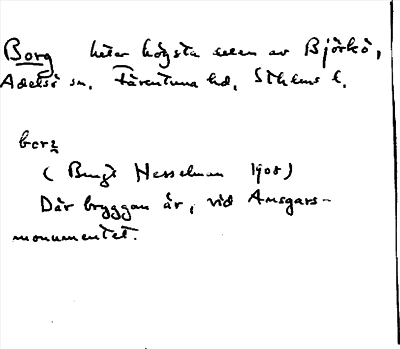 Borg heter högsta delen av Björkö,
Adelsö sn. Färentuna hd, Sthlms l.
borg
( Bengt Hesselman 1908)
Där bryggan är, vid Ansgars-
monumentet.